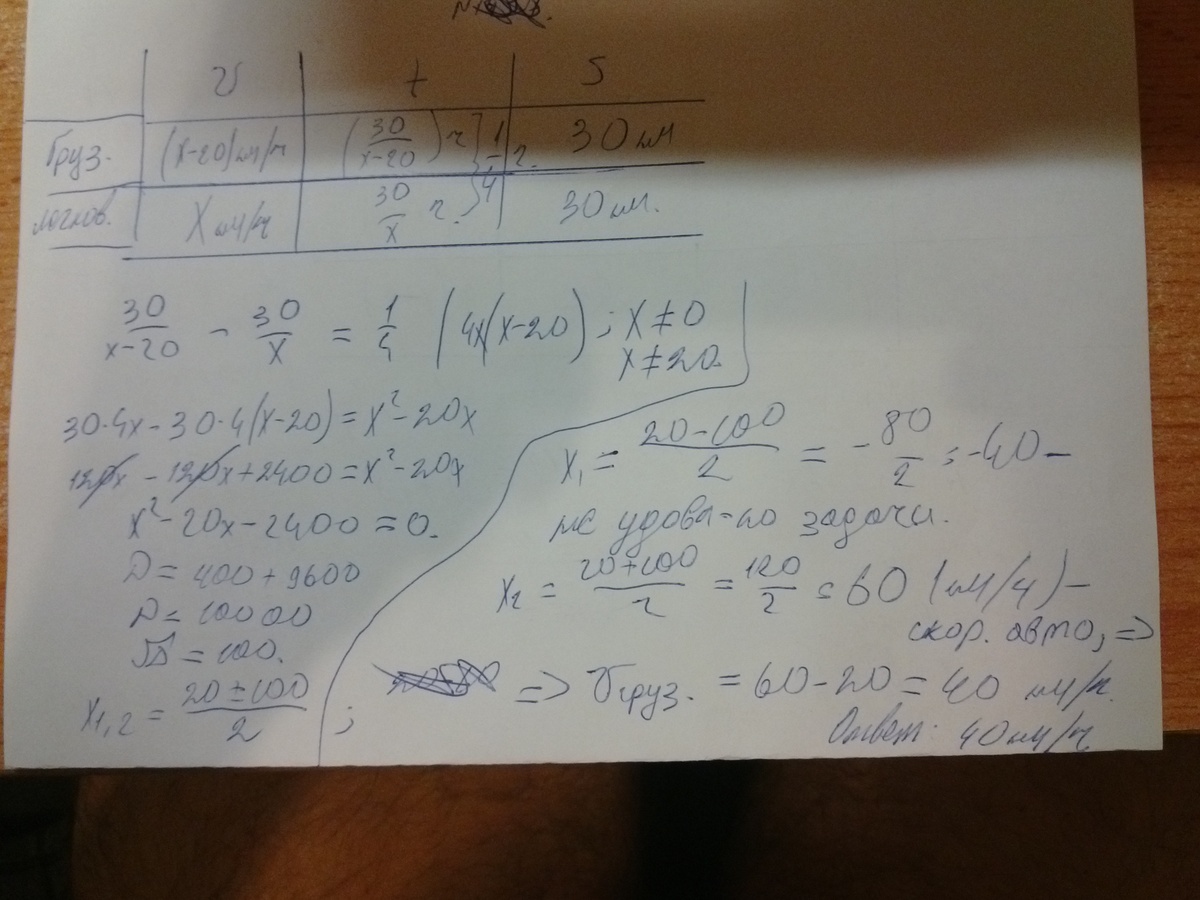 v t S
Груз. (x-20)км/ч (30/(x-20))ч 1/4 г. 30 км
легков. X км/ч 30/x ч. 30 км.
30/(x-20) - 30/x = 1/4 (4x(x-20); x≠0
x≠20.
30·4x-30·4(x-20)=x²-20x
120x-120x+2400=x²-20x
x²-20x-2400=0.
D=400+9600
D=10000
√D=100.
x1,2 = (20±100)/2 ;
x1 = (20-100)/2 = -80/2 = -40 –
не удовл-ию задачи.
x2 = (20+100)/2 = 120/2 = 60 (км/ч) –
скор. авто, =>
=> vгруз. = 60-20 = 40 км/ч.
Ответ: 40 км/ч